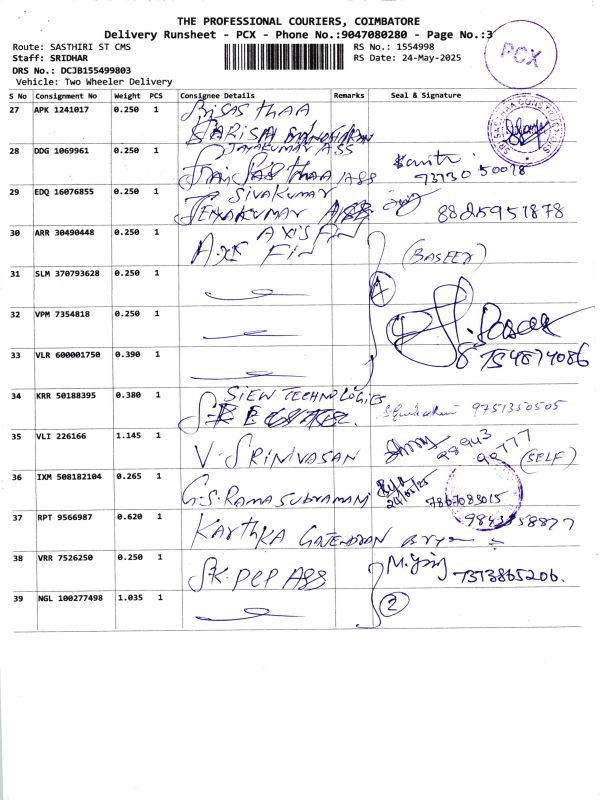 THE PROFESSIONAL COURIERS, COIMBATORE
Delivery Runsheet - PCX - Phone No.:9047080280 - Page No.:3
Route: SASTHIRI ST CMS
RS No.: 1554998
Staff: SRIDHAR
RS Date: 24-May-2025
DRS No.: DCJB155499803
Vehicle: Two Wheeler Delivery
PCX
S No Consignment No Weight PCS Consignee Details Remarks Seal & Signature
27 APK 1241017 0.250 1
28 DDG 1069961 0.250 1 JAYAKUMAR ASS
73130 50018
29 EDQ 16076855 0.250 1 SIVAKUMAR
JEYAKUMAR 8825951878
30 ARR 30490448 0.250 1 AXIS Fin
Fin (BASEER)
31 SLM 370793628 0.250 1
4
32 VPM 7354818 0.250 1
33 VLR 600001750 0.390 1
8754874086
34 KRR 50188395 0.380 1 SIEW TECHNOLOGIES
9751350505
35 VLI 226166 1.145 1 V. SRINIVASAN
98943
99777
(SELF)
36 IXM 508182104 0.265 1 G.S. RAMASUBRAMANI
24/05/25
7867083015
37 RPT 9566987 0.620 1 KARTHKA GAJENDRAN
9843358877
38 VRR 7526250 0.250 1 S.K. PCP ASS
7373865206.
39 NGL 100277498 1.035 1
2